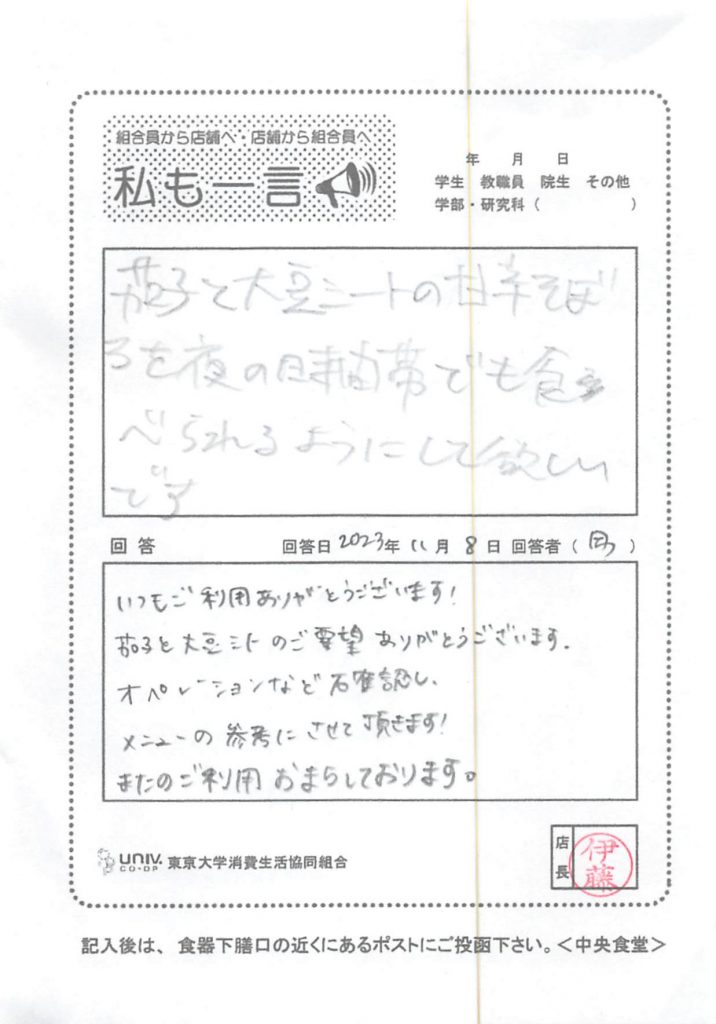 組合員から店舗へ・店舗から組合員へ
私も一言
年 月 日
学生 教職員 院生 その他
学部・研究科( )
茄子と大豆ミートの甘辛そぼ
ろを夜の時間帯でも食
べられるようにして欲しい
です
回答 回答日2023年11月8日 回答者( )
いつもご利用ありがとうございます!
茄子と大豆ミートのご要望ありがとうございます.
オペレーションなど確認し、
メニューの参考にさせて頂きます!
またのご利用おまちしております。
UNIV. CO-OP 東京大学消費生活協同組合
店長 伊藤
記入後は、食器下膳口の近くにあるポストにご投函下さい。<中央食堂>